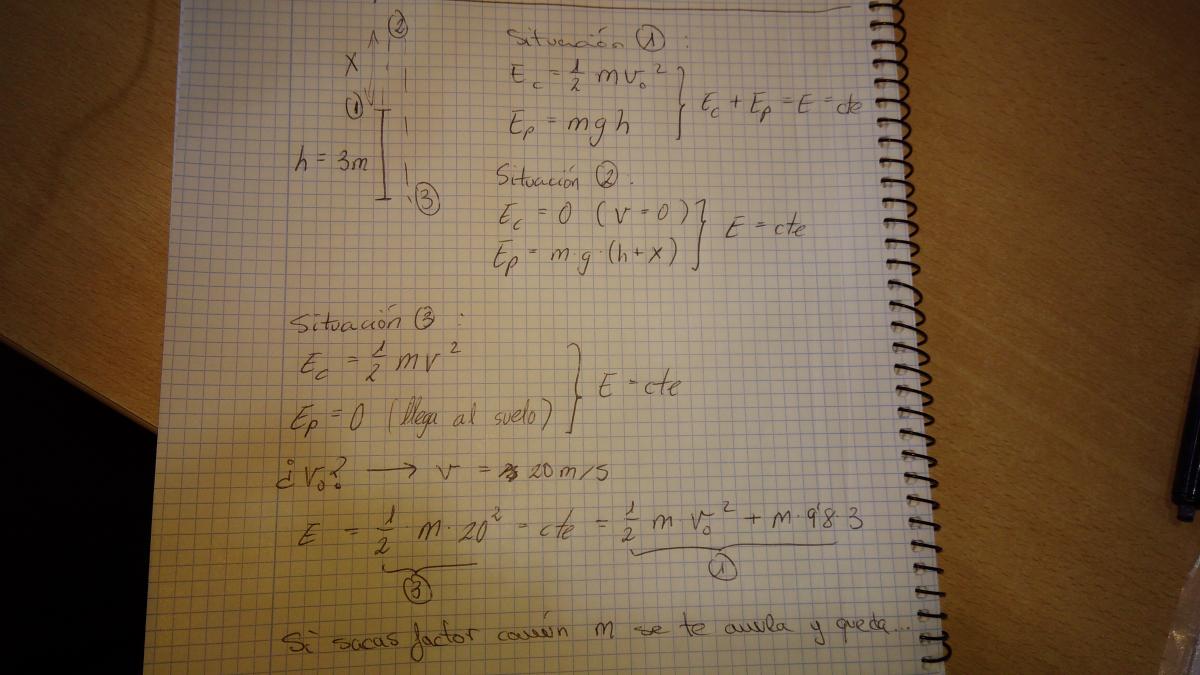 ②
x
①
h = 3m
③
Situación ① :
Ec = 1/2 m v₀²
Ep = m g h
} Ec + Ep = E = cte
Situación ② :
Ec = 0 (v = 0)
Ep = m · g · (h + x)
} E = cte
Situación ③ :
Ec = 1/2 m v²
Ep = 0 (llega al suelo)
} E = cte
¿v₀? → v = 20 m/s
E = 1/2 · m · 20² = cte = 1/2 m · v₀² + m · 9'8 · 3
③ ①
Si sacas factor común m se te anula y queda...